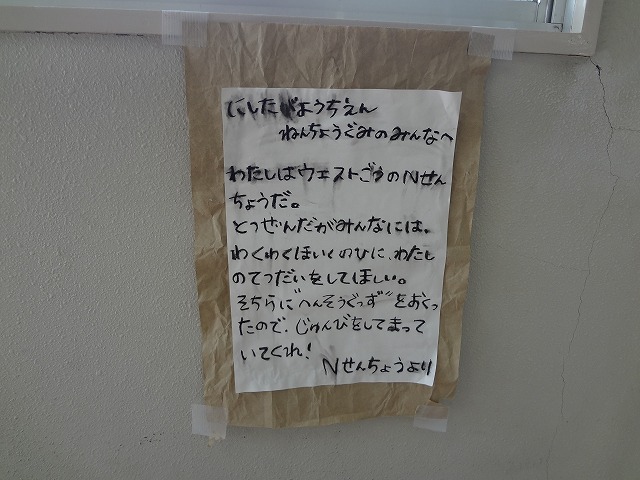 にしたびようちえん
ねんちょうぐみのみんなへ
わたしはウエストごうのNせん
ちょうだ。
とつぜんだがみんなには、
わくわくほいくのひに、わたし
のてつだいをしてほしい。
そちらに"へんそうぐっず"をおくっ
たので、じゅんびをしてまって
いてくれ!
Nせんちょうより